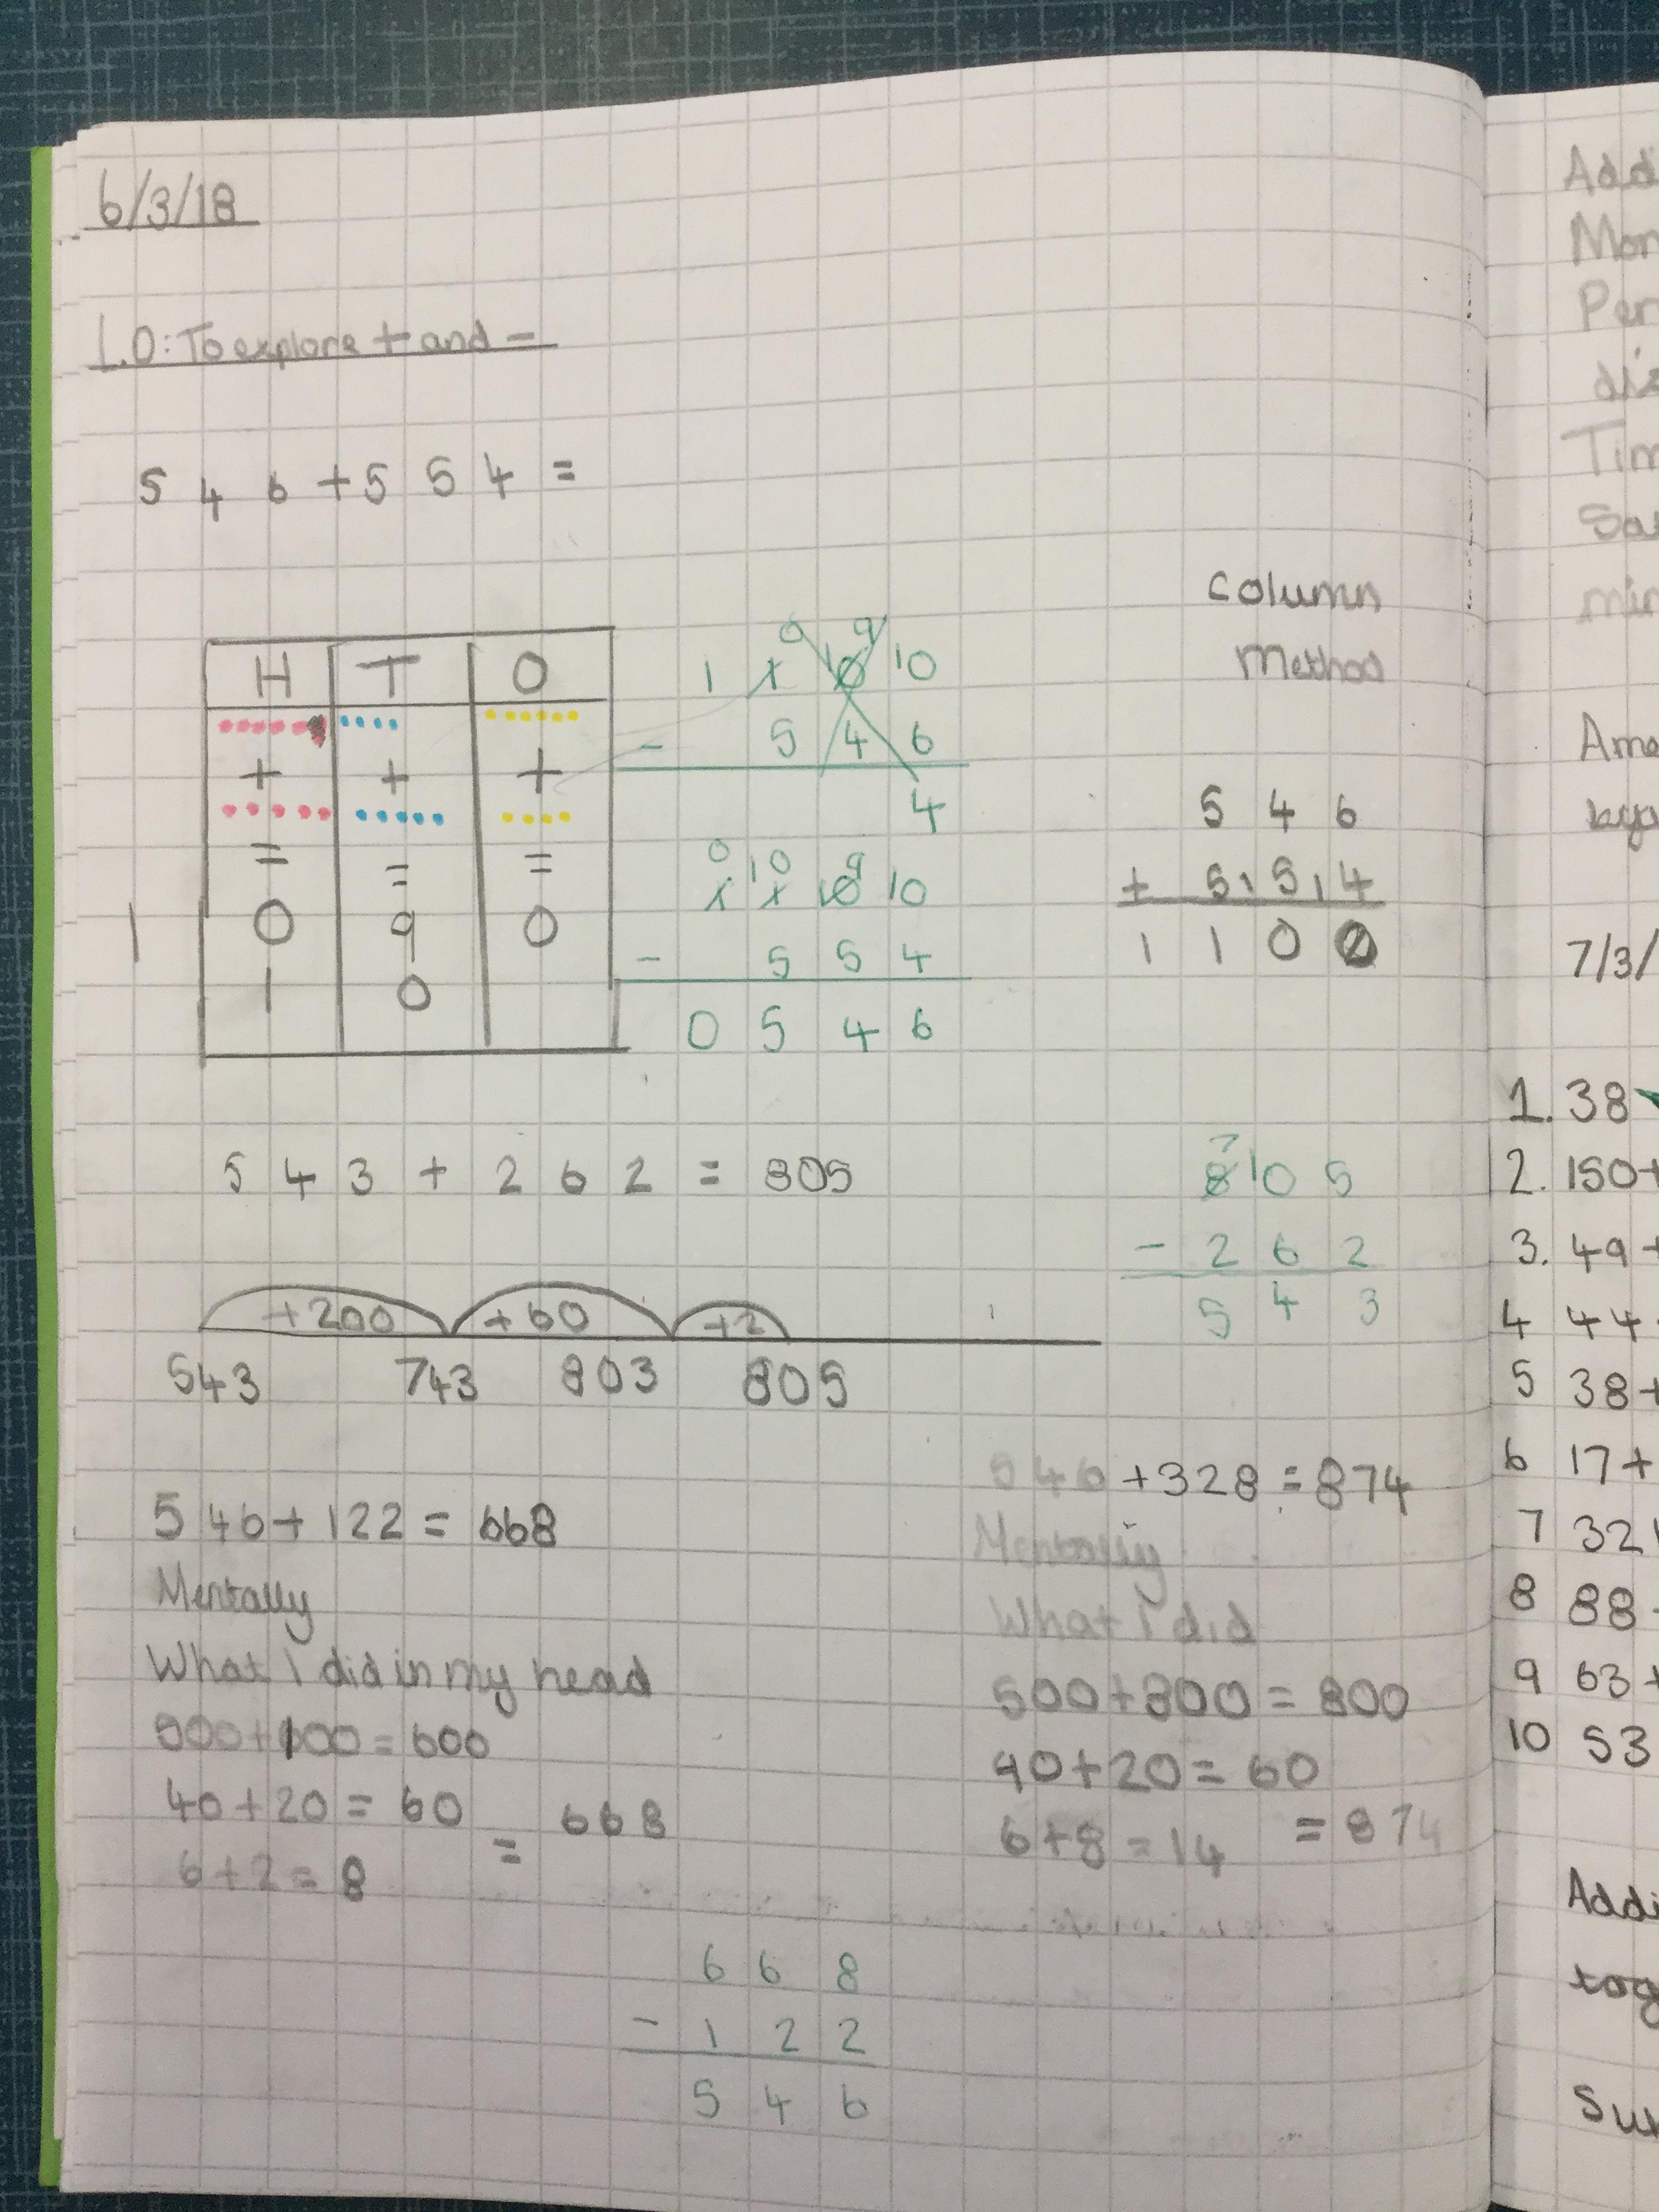 6/3/18
L.O: To explore + and -
5 4 6 + 5 5 4 =
Column
Method
H T O
1 1 10 10
0 9
- 5 4 6
4
+ + +
= = =
1 0 9 0
1 0
0 10 9
1 1 10 10
- 5 5 4
0 5 4 6
5 4 6
+ 5 1 5 1 4
1 1 0 0
5 4 3 + 2 6 2 = 805
7
8 10 5
- 2 6 2
5 4 3
+200 +60 +2
543 743 803 805
546 + 122 = 668
Mentally
What I did in my head
500 + 100 = 600
40 + 20 = 60
6 + 2 = 8
= 668
6 6 8
- 1 2 2
5 4 6
546 + 328 = 874
Mentally
What I did
500 + 300 = 800
40 + 20 = 60
6 + 8 = 14 = 874
Add
7/3/
1. 38
2. 150+
3. 49+
4 44
5 38+
6 17+
7 32
8 88
9 63+
10 53